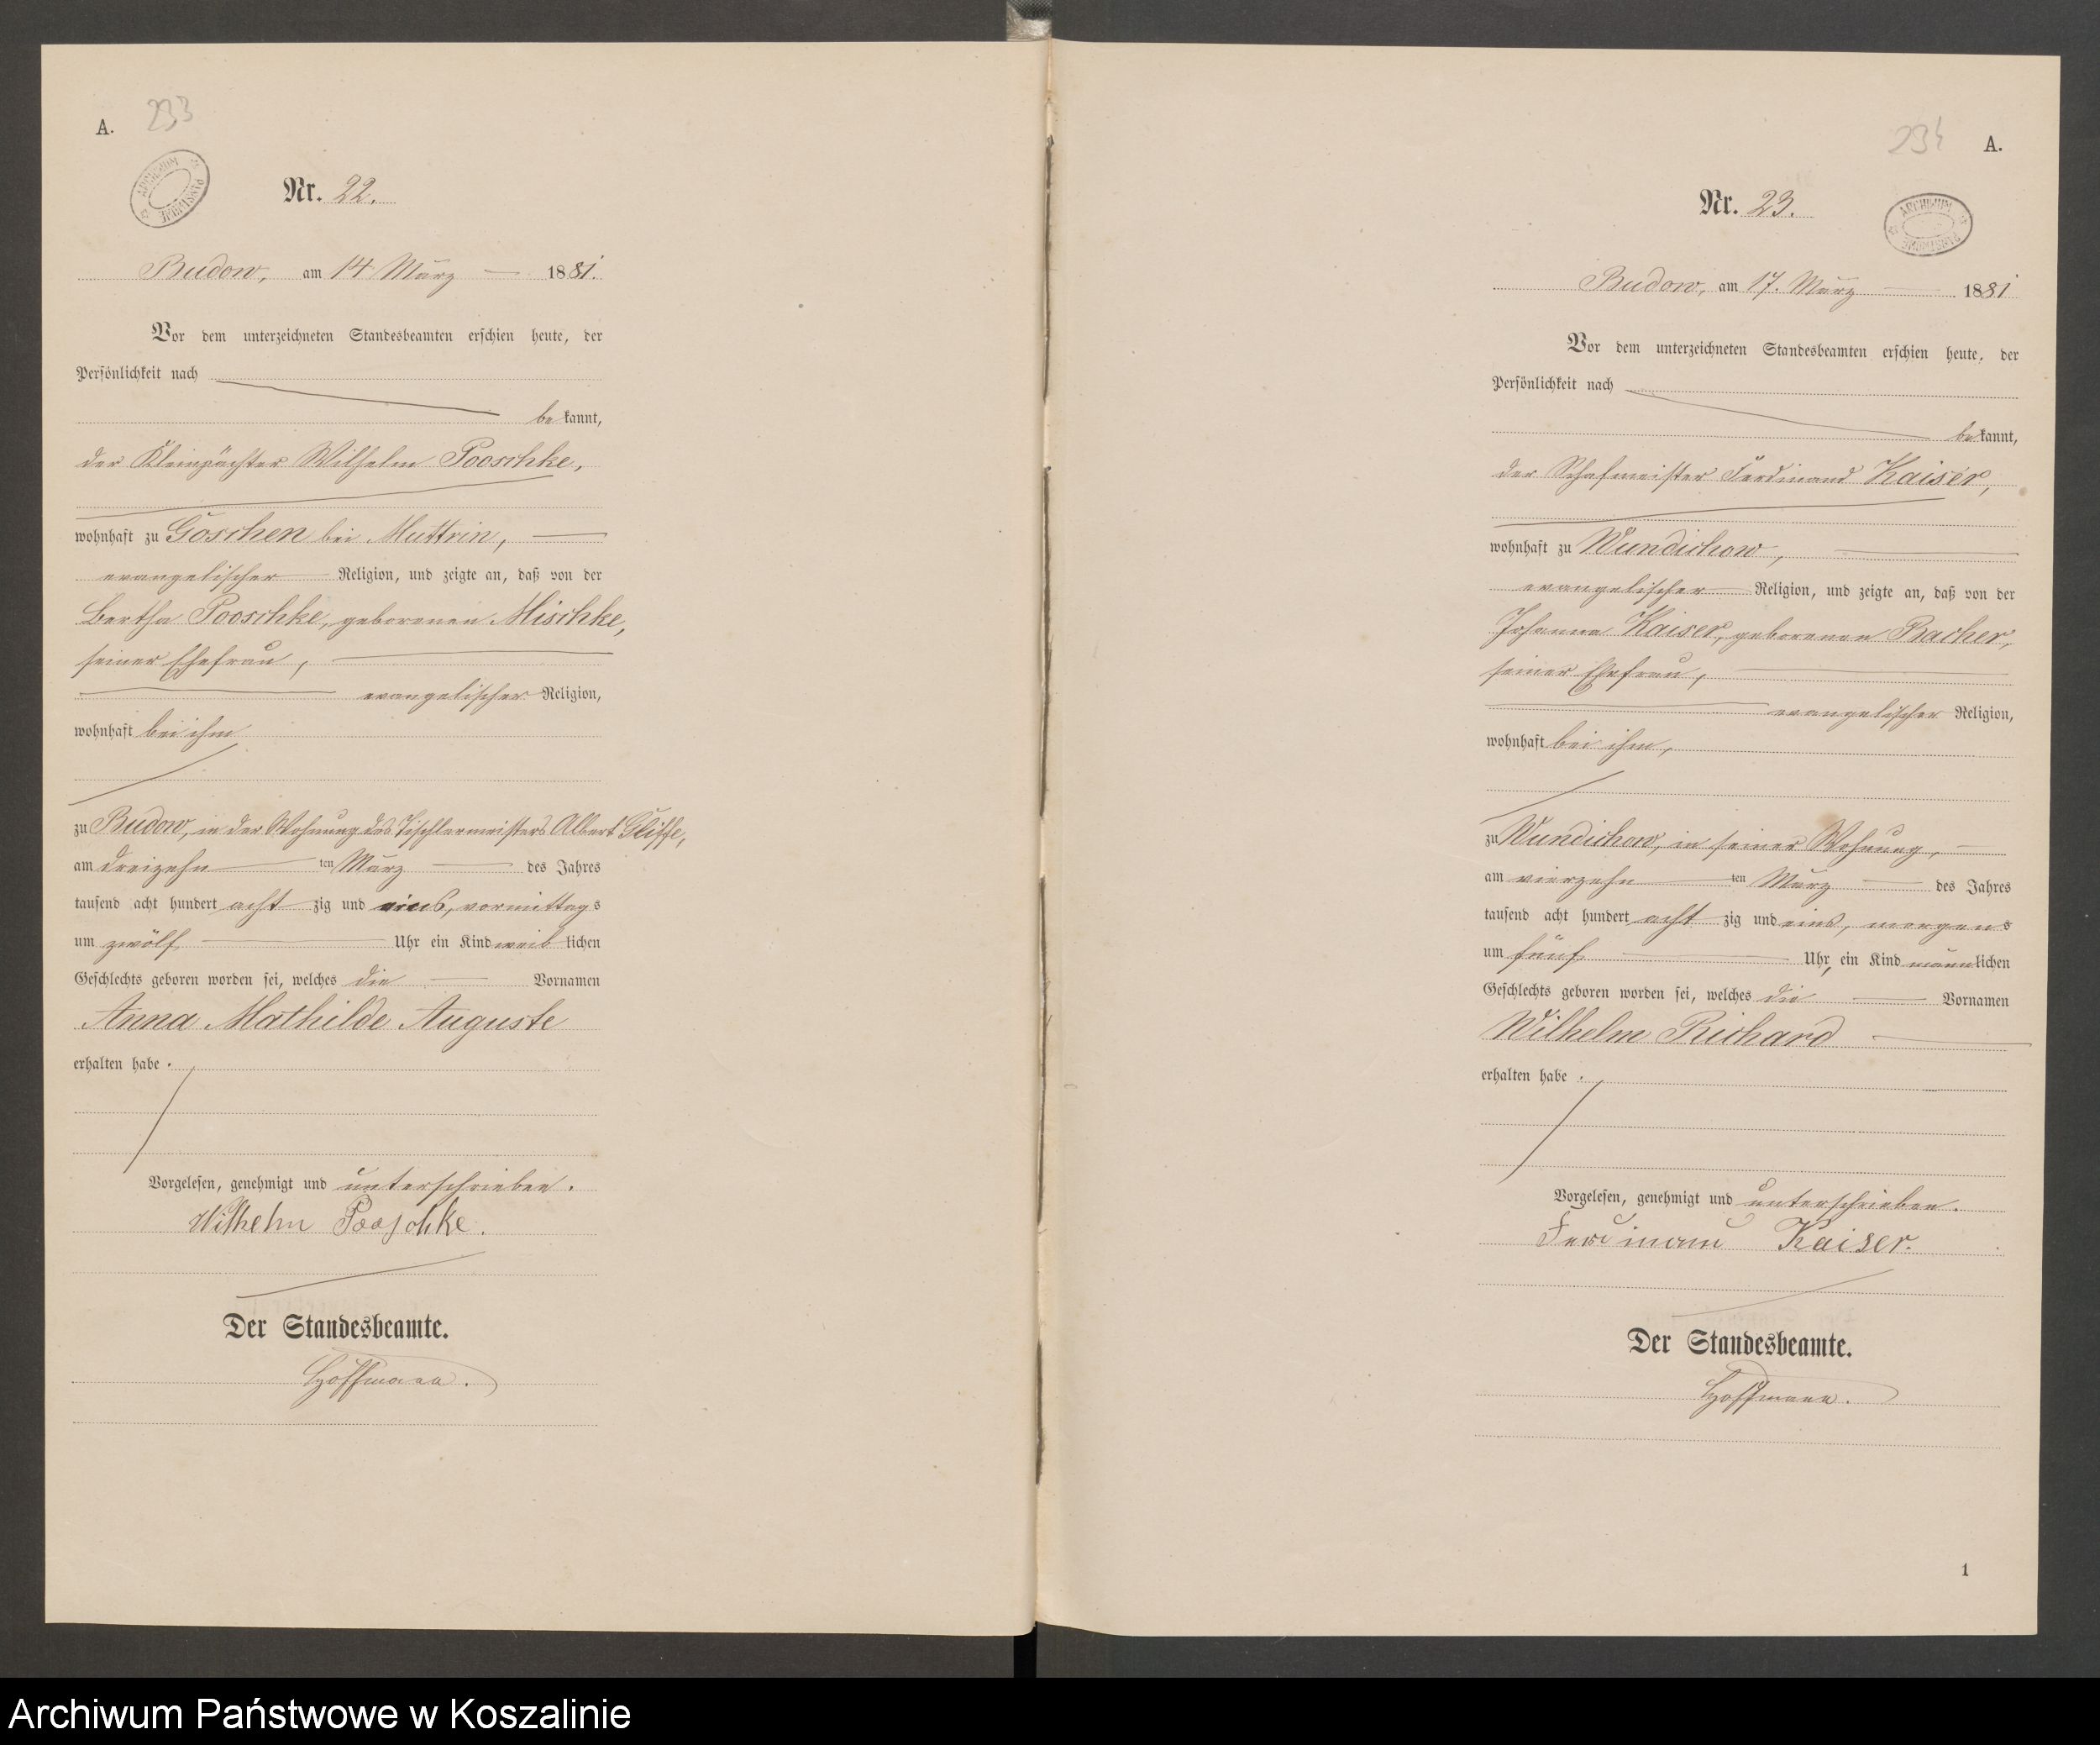 A.
233
ARCHIWUM PAŃSTWOWE
Nr. 22.
Budow, am 14 März 1881.
Vor dem unterzeichneten Standesbeamten erschien heute, der
Persönlichkeit nach
bekannt,
der Kleinpächter Wilhelm Pooschke,
wohnhaft zu Goschen bei Muttrin,
evangelischer Religion, und zeigte an, daß von der
Bertha Pooschke, geborenen Mischke,
seiner Ehefrau,
evangelischer Religion,
wohnhaft bei ihm
zu Budow, in der Wohnung des Tischlermeisters Albert
am dreizehn ten März des Jahres
tausend acht hundert acht zig und eins, vormittags
um zwölf Uhr ein Kind weiblichen
Geschlechts geboren worden sei, welches die Vornamen
Anna Mathilde Auguste
erhalten habe.
Vorgelesen, genehmigt und unterschrieben.
Wilhelm Pooschke.
Der Standesbeamte.
Hoffmann.
234
A.
Nr. 23.
ARCHIWUM PAŃSTWOWE
Budow, am 17. März 1881
Vor dem unterzeichneten Standesbeamten erschien heute, der
Persönlichkeit nach
bekannt,
der Schafmeister Ferdinand Kaiser,
wohnhaft zu Wundichow,
evangelischer Religion, und zeigte an, daß von der
Johanna Kaiser, geborenen Bacher,
seiner Ehefrau,
evangelischer Religion,
wohnhaft bei ihm,
zu Wundichow, in seiner Wohnung,
am vierzehn ten März des Jahres
tausend acht hundert acht zig und eins, morgens
um fünf Uhr, ein Kind männlichen
Geschlechts geboren worden sei, welches die Vornamen
Wilhelm Richard
erhalten habe.
Vorgelesen, genehmigt und unterschrieben.
Ferdinand Kaiser.
Der Standesbeamte.
Hoffmann.
1
Archiwum Państwowe w Koszalinie